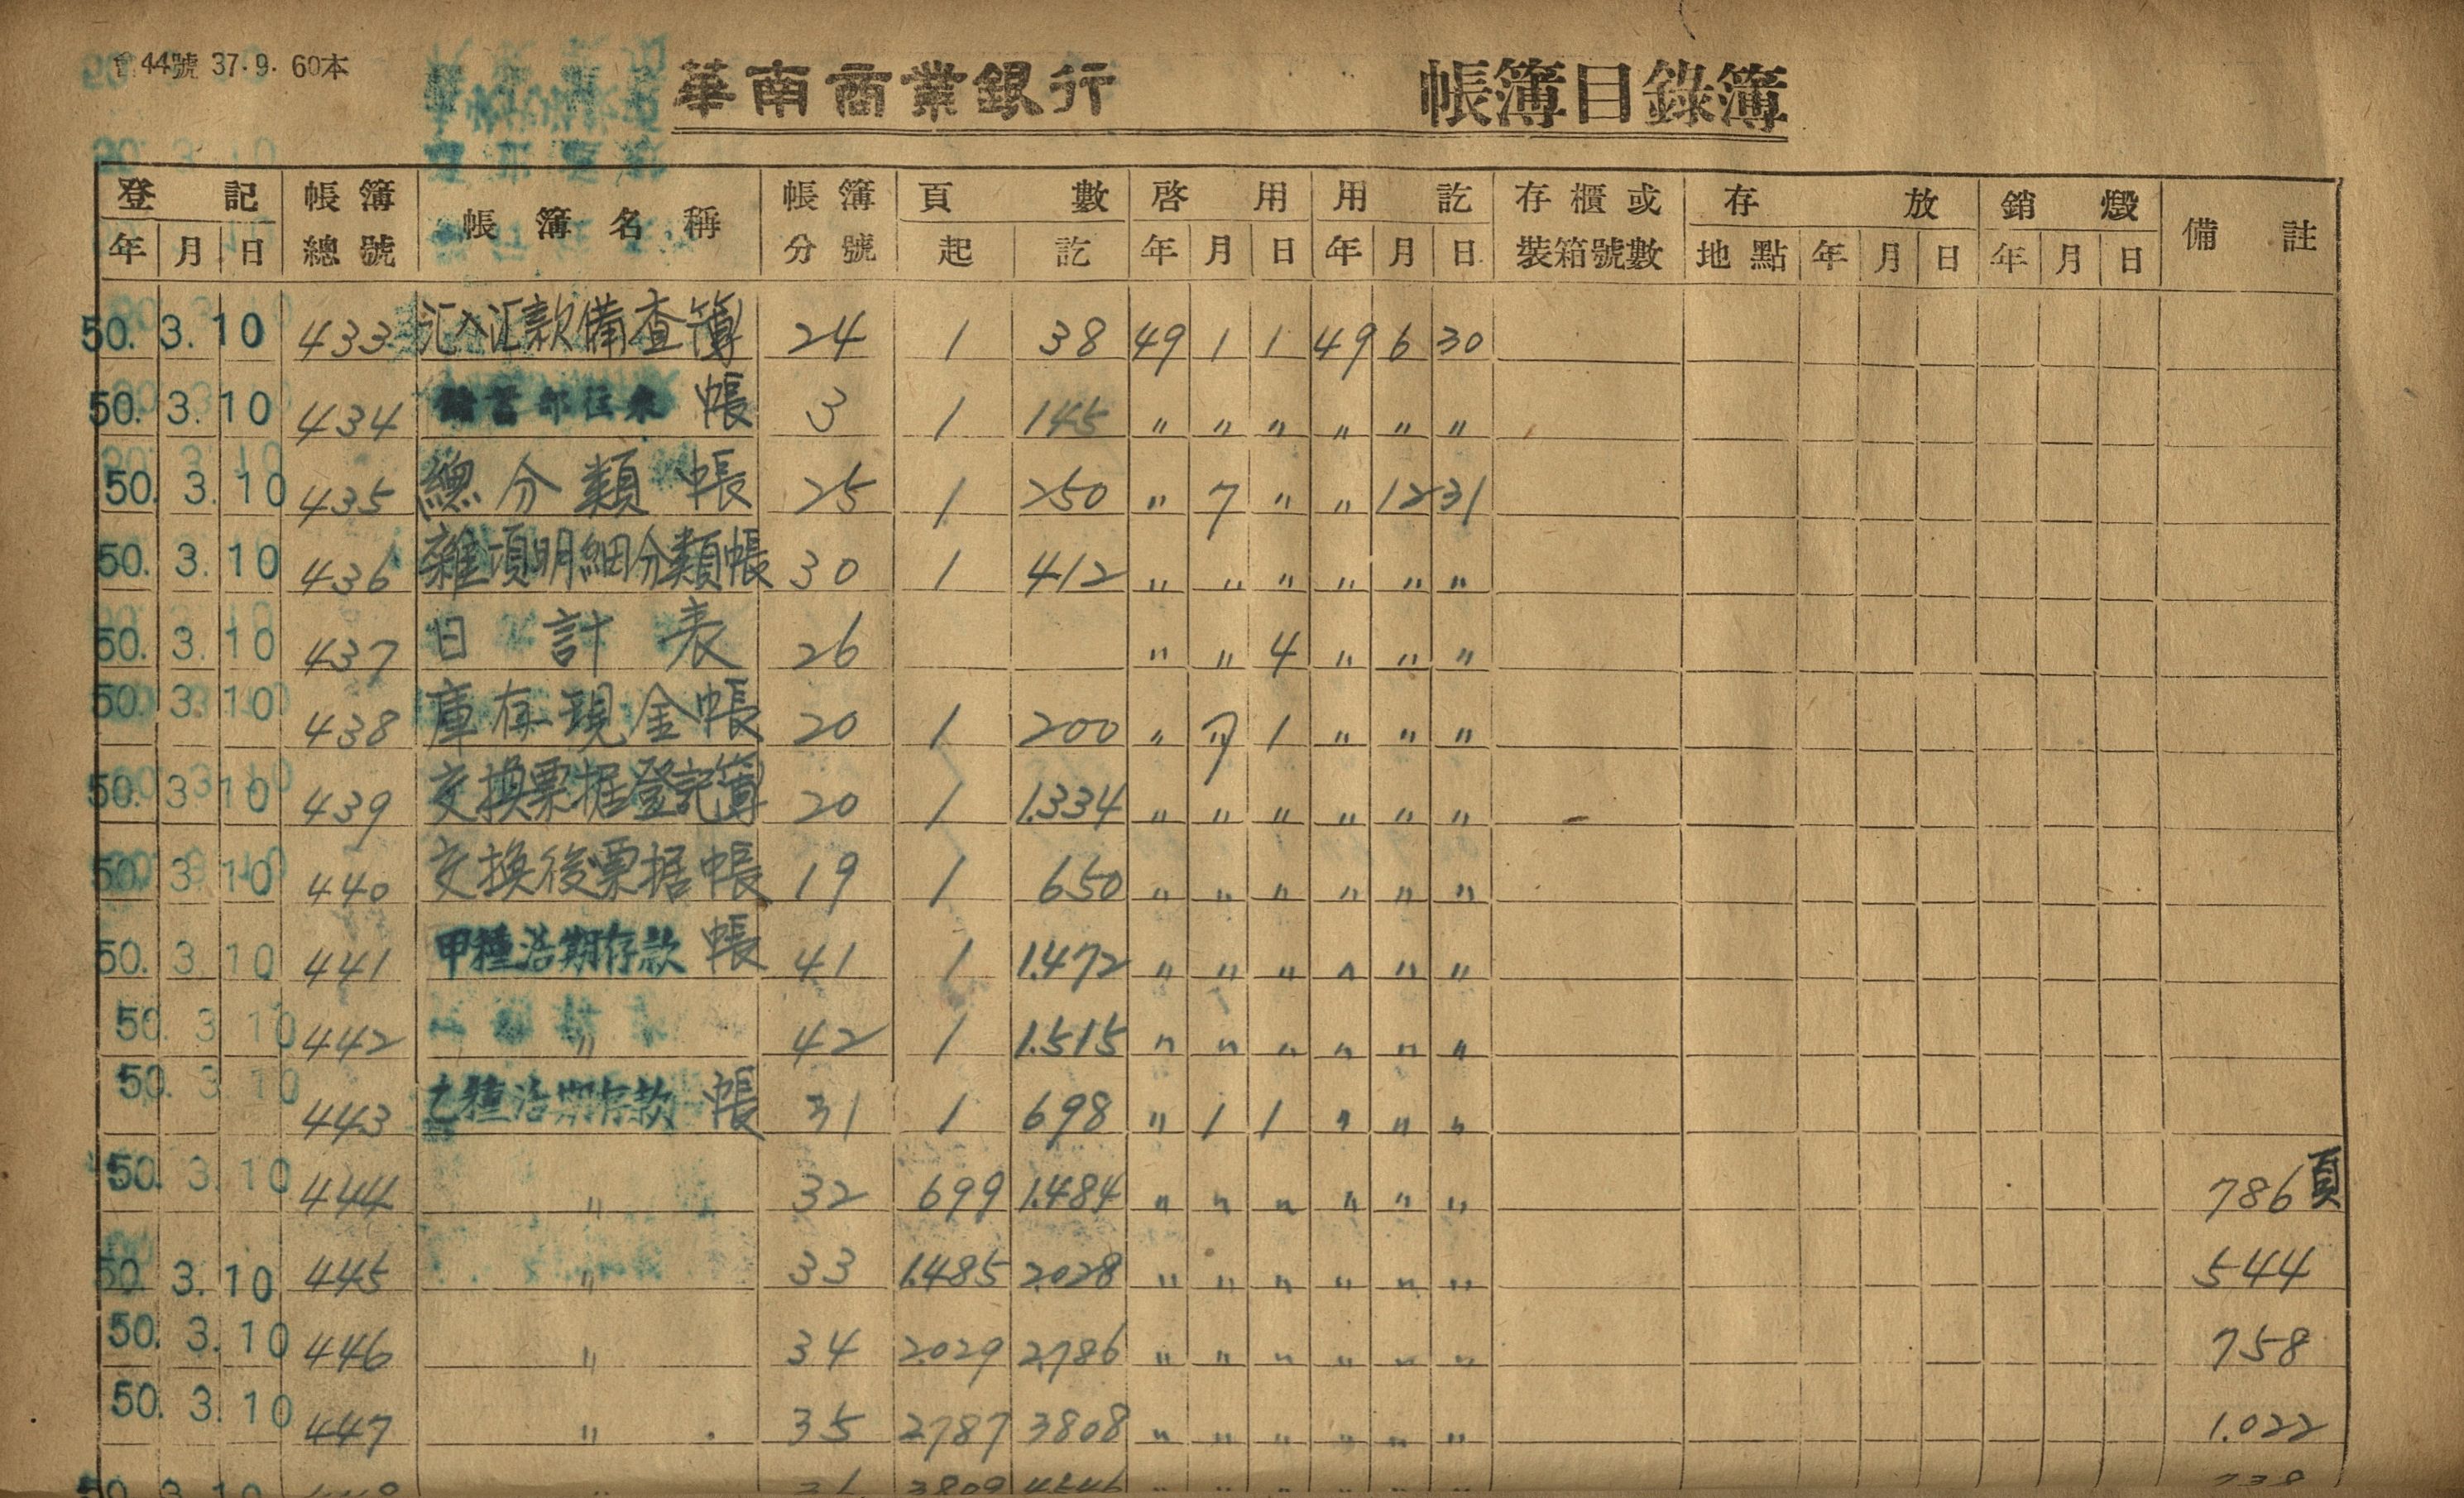 44號 37.9. 60本
華南商業銀行 帳簿目錄簿
登記 帳簿總號 帳簿名稱 帳簿分號 頁數 啓用 用訖 存櫃或裝箱號數 存放 銷燬 備註
年 月 日 起 訖 年 月 日 年 月 日 地點 年 月 日 年 月 日
50. 3. 10 433 汇入汇款備查簿 24 1 38 49 1 1 49 6 30
50. 3. 10 434 部往來 帳 3 1 145 〃 〃 〃 〃 〃 〃
50. 3. 10 435 總分類帳 25 1 250 〃 7 〃 〃 12 31
50. 3. 10 436 雜項明細分類帳 30 1 412 〃 〃 〃 〃 〃 〃
50. 3. 10 437 日計表 26 〃 〃 4 〃 〃 〃
50. 3. 10 438 庫存現金帳 20 1 200 〃 7 1 〃 〃 〃
50. 3 10 439 交換票据登記簿 20 1 1.334 〃 〃 〃 〃 〃 〃
50. 3 10 440 交換後票据帳 19 1 650 〃 〃 〃 〃 〃 〃
50. 3 10 441 甲種活期存款 帳 41 1 1.472 〃 〃 〃 〃 〃 〃
50. 3 10 442 〃 42 1 1.515 〃 〃 〃 〃 〃 〃
50. 3 10 443 乙種活期存款 帳 31 1 698 〃 1 1 〃 〃 〃
50. 3. 10 444 〃 32 699 1.484 〃 〃 〃 〃 〃 〃 786頁
50. 3. 10 445 〃 33 1.485 2.028 〃 〃 〃 〃 〃 〃 544
50. 3. 10 446 〃 34 2.029 2.786 〃 〃 〃 〃 〃 〃 758
50. 3. 10 447 〃 35 2.787 3808 〃 〃 〃 〃 〃 〃 1.022
50 3 10 3809